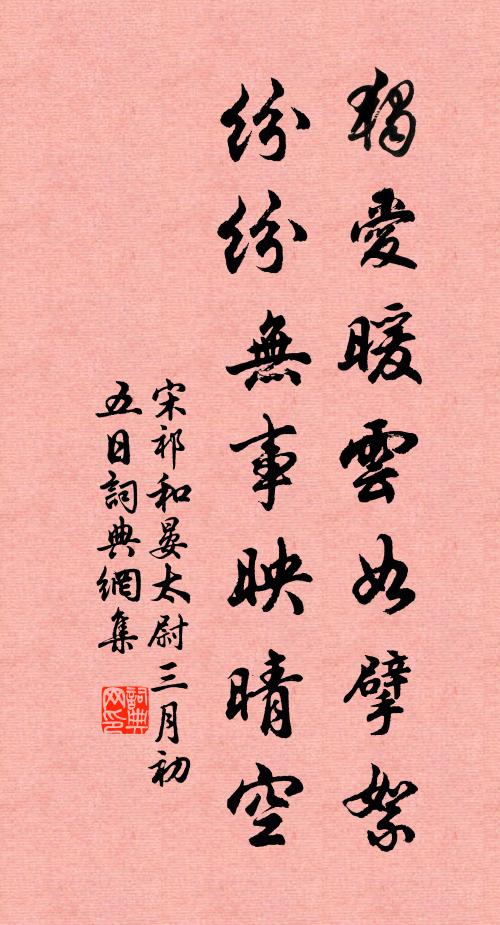 獨愛暖雲如擘絮
紛紛無事映晴空
宋祁和晏太尉三月初
五日詞典網集
詞典网印